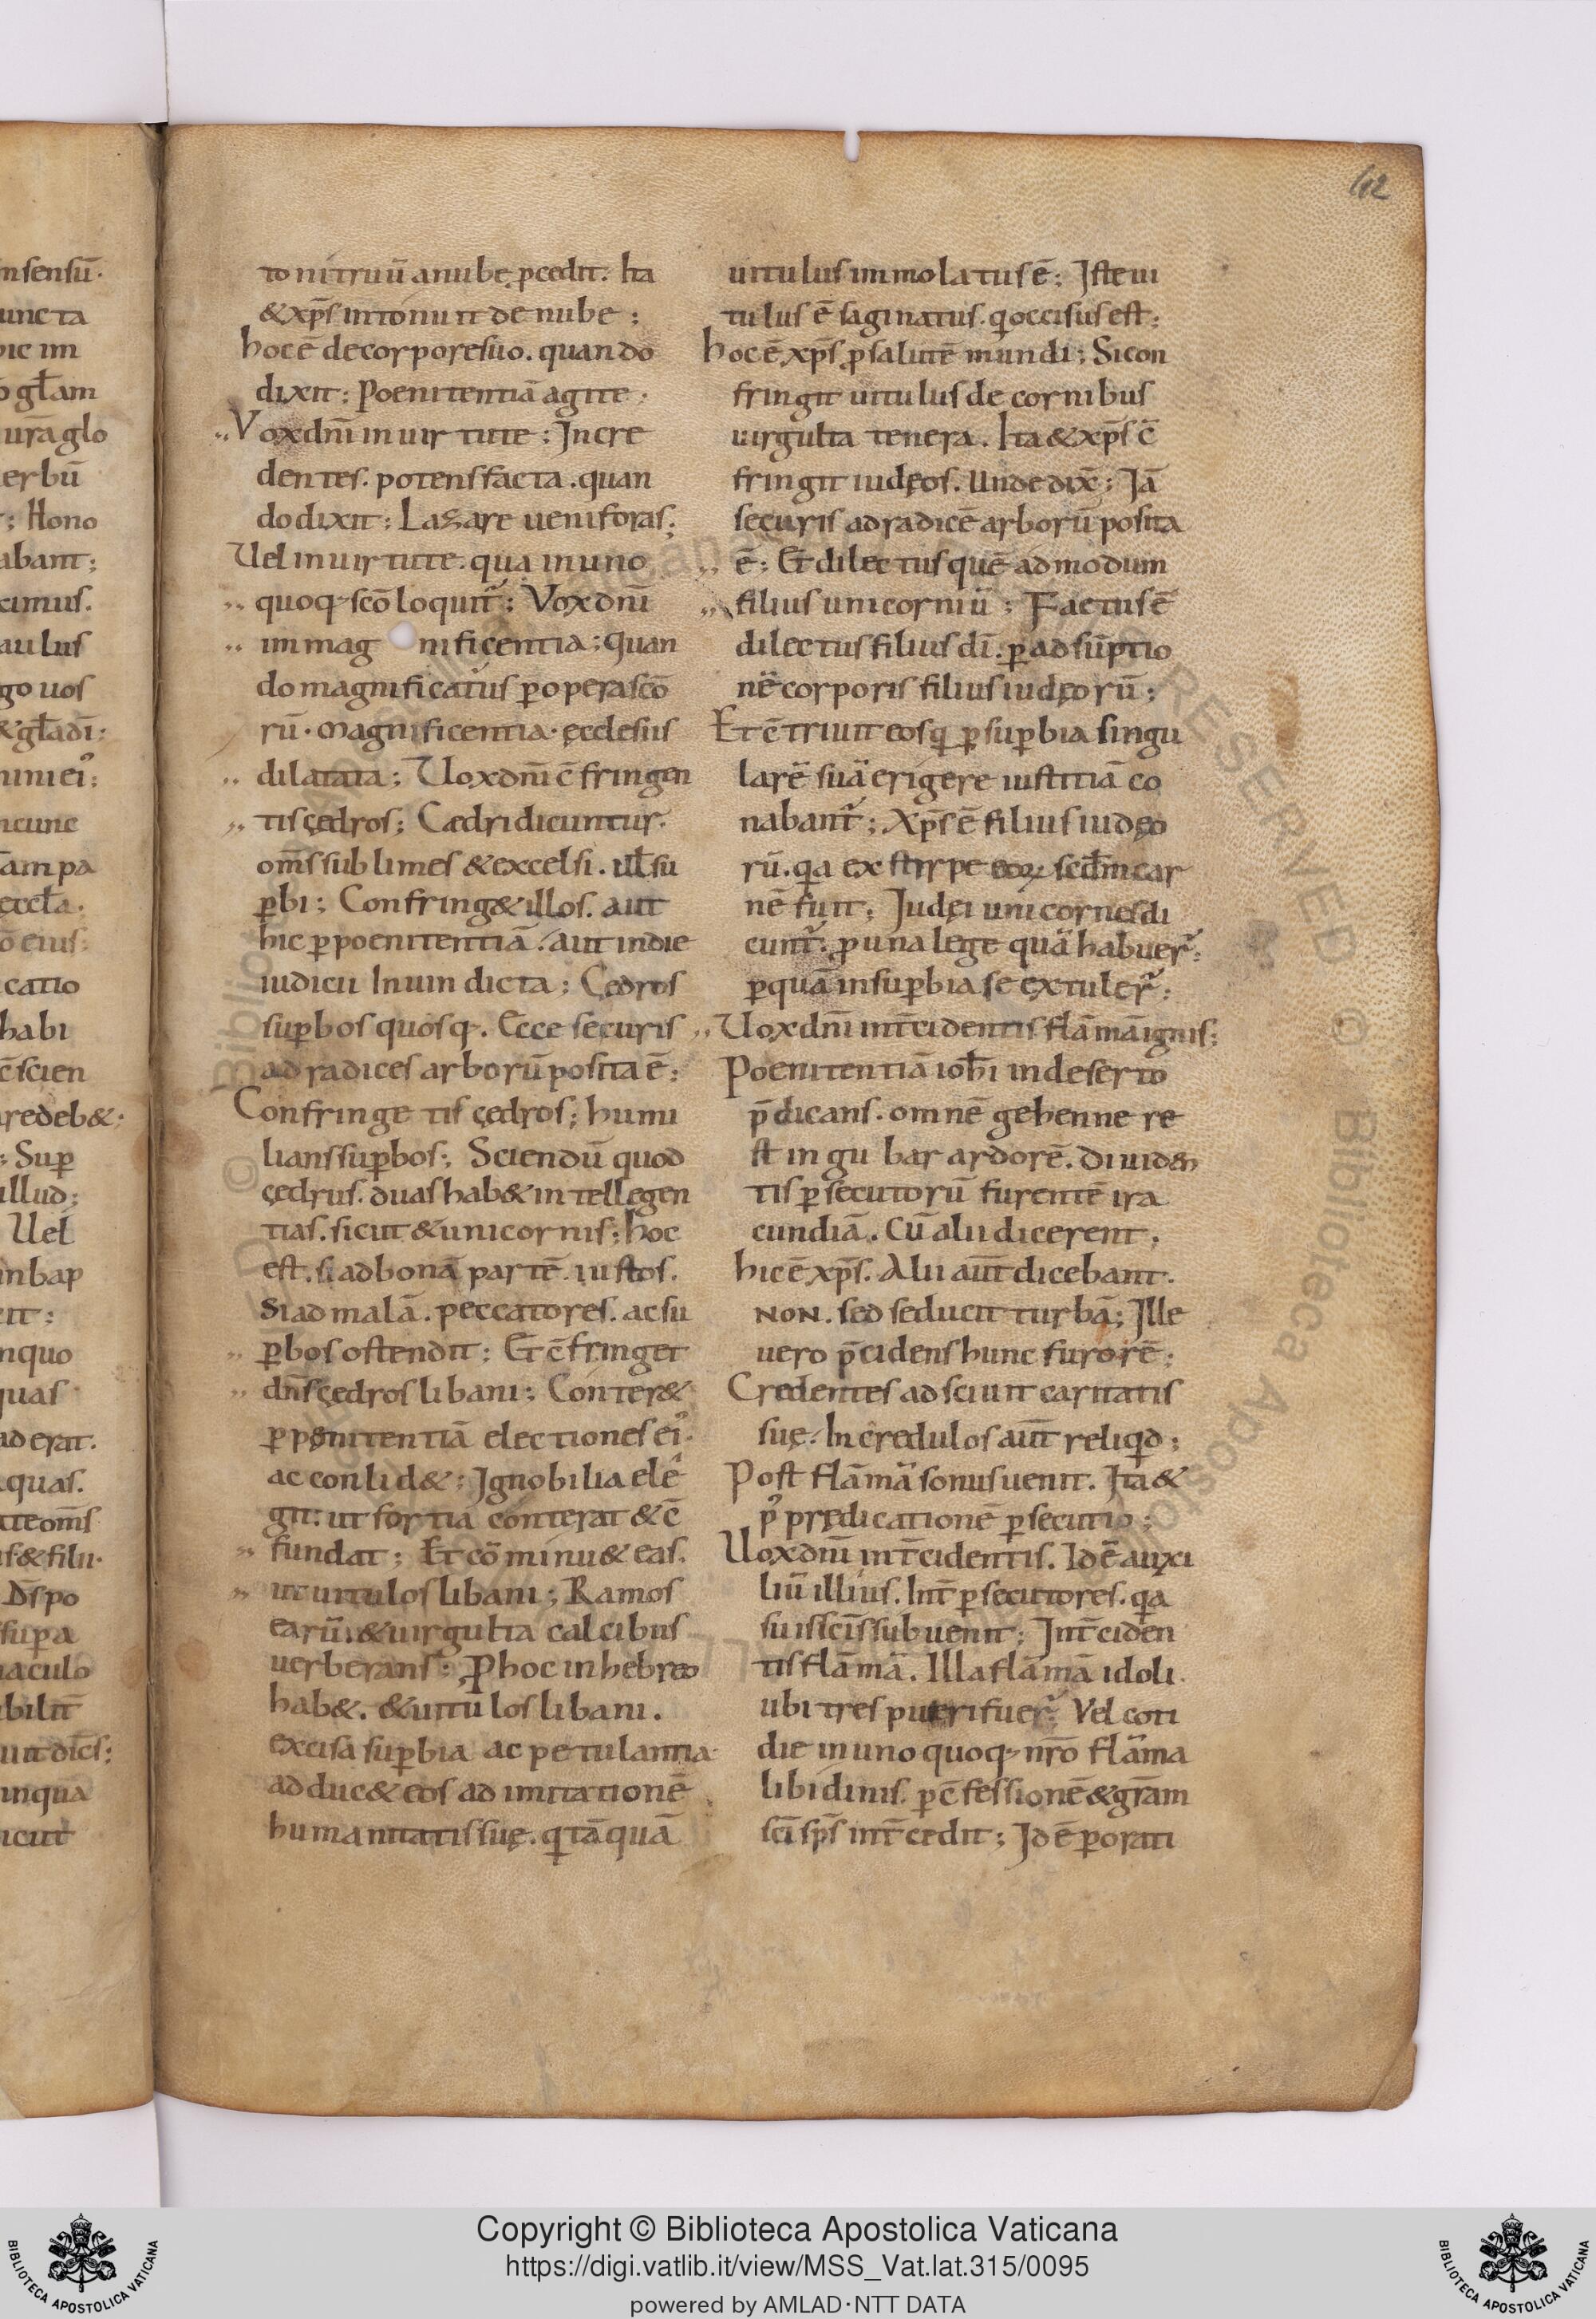 42
tonitruū anube p̱cedit. Ita
&xp̄s intonuit de nube ;
hoc ē decorporesuo. quando
dixit ; Poenitentiā agite ;
Vox dn̄i in uirtute ; In cre
dentes. potens facta . quan
do dixit ; Lazare ueni foras ;
Uel in uirtute. qua in uno
quoq; sc̄o loquit̄ ; Vox dn̄i
im mag nificentia ; quan
do magnificatus p̱ opera sc̄o
rū. magnificentia. ęcclesiis
dilatata ; Uox dn̄i c̄fringen
tis cędros ; Cædri dicuntur.
om̄s sublimes & excelsi. ul̄ su
p̱bi ; Confring& illos. aut
hic p̱ poenitentiā. aut in die
iudicii In uindicta ; Cedros
sup̱bos quosq;. Ecce securis
ad radices arborū posita ē ;
Confringetis cędros ; humi
lians sup̱bos ; Sciendū quod
cędrus. duas hab& intellegen
tias. sicut & unicornis ; hoc
est. si ad bonā partē. iustos.
Si ad malā. peccatores. ac su
p̱bos ostendit ; Et c̄fringet
dn̄s cędros libani ; Conter&
p̱ pęnitentiā electiones ei᾽.
ac conlid& ; Ignobilia ele
git. ut fortia conterat & c̄
fundat ; Et cōminu& eas.
ut uitulos libani ; Ramos
earū. & uirgulta calcibus
uerberans ; P̱ hoc in hebreo
hab&. & uitulos libani.
excisa sup̱bia ac petulantia.
adduc& eos ad imitationē
humanitatis suę. q tāquā
uitulus immolatus ē ; Iste ui
tulus ē saginatus. q occisus est ;
hoc ē xp̄s p̱ salutē mundi ; Sicon
fringit uitulus de cornibus
uirgulta tenera. Ita & xp̄s c̄
fringit iudęos. Unde dix̄ ; Iā
securis ad radicē arborū posita
ē ; Et dilectus quē admodum
filius unicorniū ; Factus ē
dilectus filius dī. p̱ adsūptio
nē corporis filius iudęorū ;
Et c̄triuit eos q p̱ sup̱bia singu
larē suā erigere iustitiā co
nabant̄ ; Xp̄s ē filius iudęo
rū. qa ex stirpe eoꝝ scd̄m car
nē fuit ; Iudęi unicornes di
cunt̄. p̱ una lege quā habuer̄ ;
p̱ quā in sup̱bia se extuler̄ ;
Uox dn̄i int̄cidentis flāmā ignis ;
Poenitentiā ioh̄i in deserto
p̄dicans. omnē gehenne re
stingubar ardorē. Diuiden
tis p̱secutorū furentē ira
cundiā. Cū alii dicerent ;
hic ē xp̄s. Alii aūt dicebant.
NON. sed seducit turbā ; Ille
uero p̄cidens hunc furorē ;
Credentes adsciuit caritatis
suę. Incredulos aūt reliqd ;
Post flāmā sonus uenit. Ita &
p᾽ prędicationē p̱secutio ;
Uox dn̄i int̄cidentis. Id ē auxi
liū illius. Int̄ p̱secutores. qa
suis sc̄is subuenit ; Int̄ciden
tis flāmā. Illa flāmā idoli.
ubi tres pueri fuer̄. Vel coti
die in uno quoq; nr̄o flāma
libidinis. p̱ c̄fessionē & gr̄am
sc̄i sp̄s int̄cedit ; Id ē p̱ orati
Copyright © Biblioteca Apostolica Vaticana
https://digi.vatlib.it/view/MSS_Vat.lat.315/0095
powered by AMLAD·NTT DATA
BIBLIOTECA APOSTOLICA VATICANA
BIBLIOTECA APOSTOLICA VATICANA